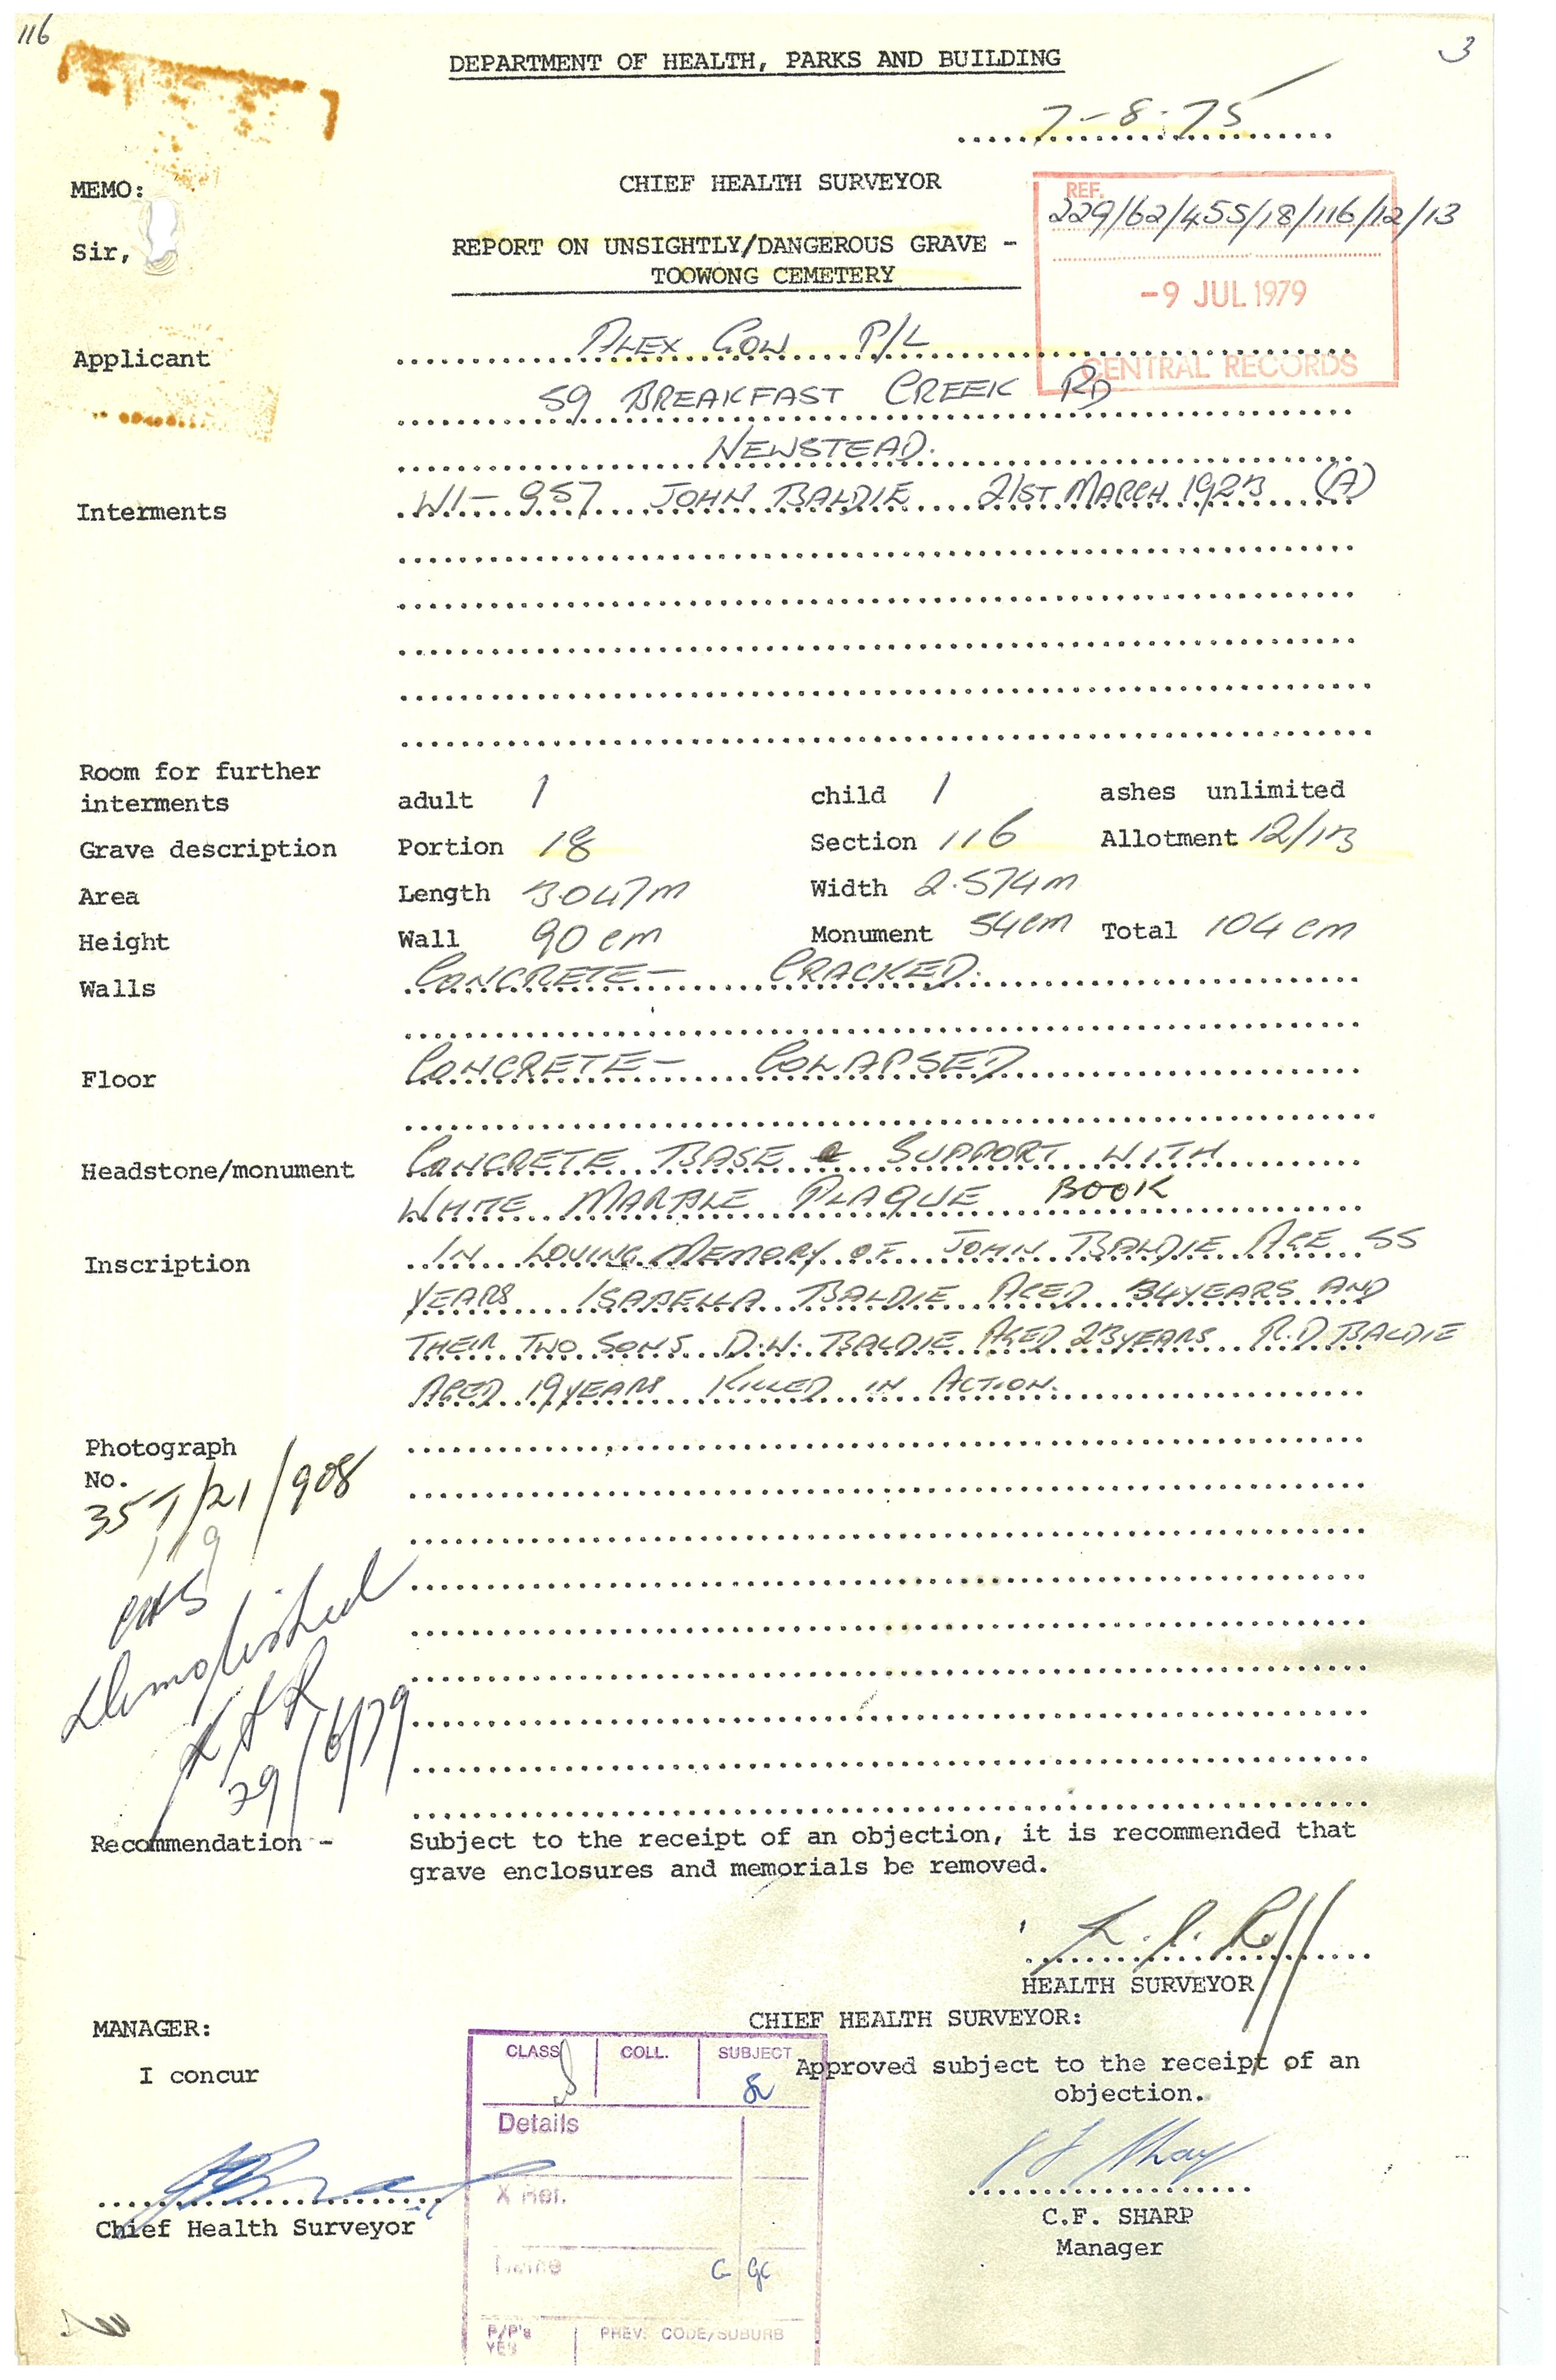 116
3
DEPARTMENT OF HEALTH, PARKS AND BUILDING
7-8-75
MEMO:
CHIEF HEALTH SURVEYOR
REF.
229/62/455/18/116/12/13
Sir,
REPORT ON UNSIGHTLY/DANGEROUS GRAVE -
TOOWONG CEMETERY
-9 JUL 1979
CENTRAL RECORDS
Applicant ALEX GOW P/L
59 BREAKFAST CREEK RD
NEWSTEAD.
Interments W1-957 JOHN BALDIE 21ST MARCH 1923 (A)
Room for further
interments adult 1 child 1 ashes unlimited
Grave description Portion 18 Section 116 Allotment 12/13
Area Length 3.047m Width 2.574m
Height Wall 90 cm Monument 54cm Total 104 cm
Walls CONCRETE- CRACKED.
Floor CONCRETE- COLAPSED
Headstone/monument CONCRETE BASE & SUPPORT WITH
WHITE MARBLE PLAQUE BOOK
Inscription IN LOVING MEMORY OF JOHN BALDIE AGE 55
YEARS ISABELLA BALDIE AGED 34YEARS AND
THEIR TWO SONS D.W. BALDIE AGED 23YEARS R.D BALDIE
AGED 19YEARS KILLED IN ACTION.
Photograph
No.
35T/21/908
119
Demolished
29/6/79
Recommendation - Subject to the receipt of an objection, it is recommended that
grave enclosures and memorials be removed.
HEALTH SURVEYOR
MANAGER:
CHIEF HEALTH SURVEYOR:
I concur
Approved subject to the receipt of an
objection.
CLASS COLL. SUBJECT
Details
X Ref.
Name G GC
P/P's
YES
PREV. CODE/SUBURB
Chief Health Surveyor
C.F. SHARP
Manager